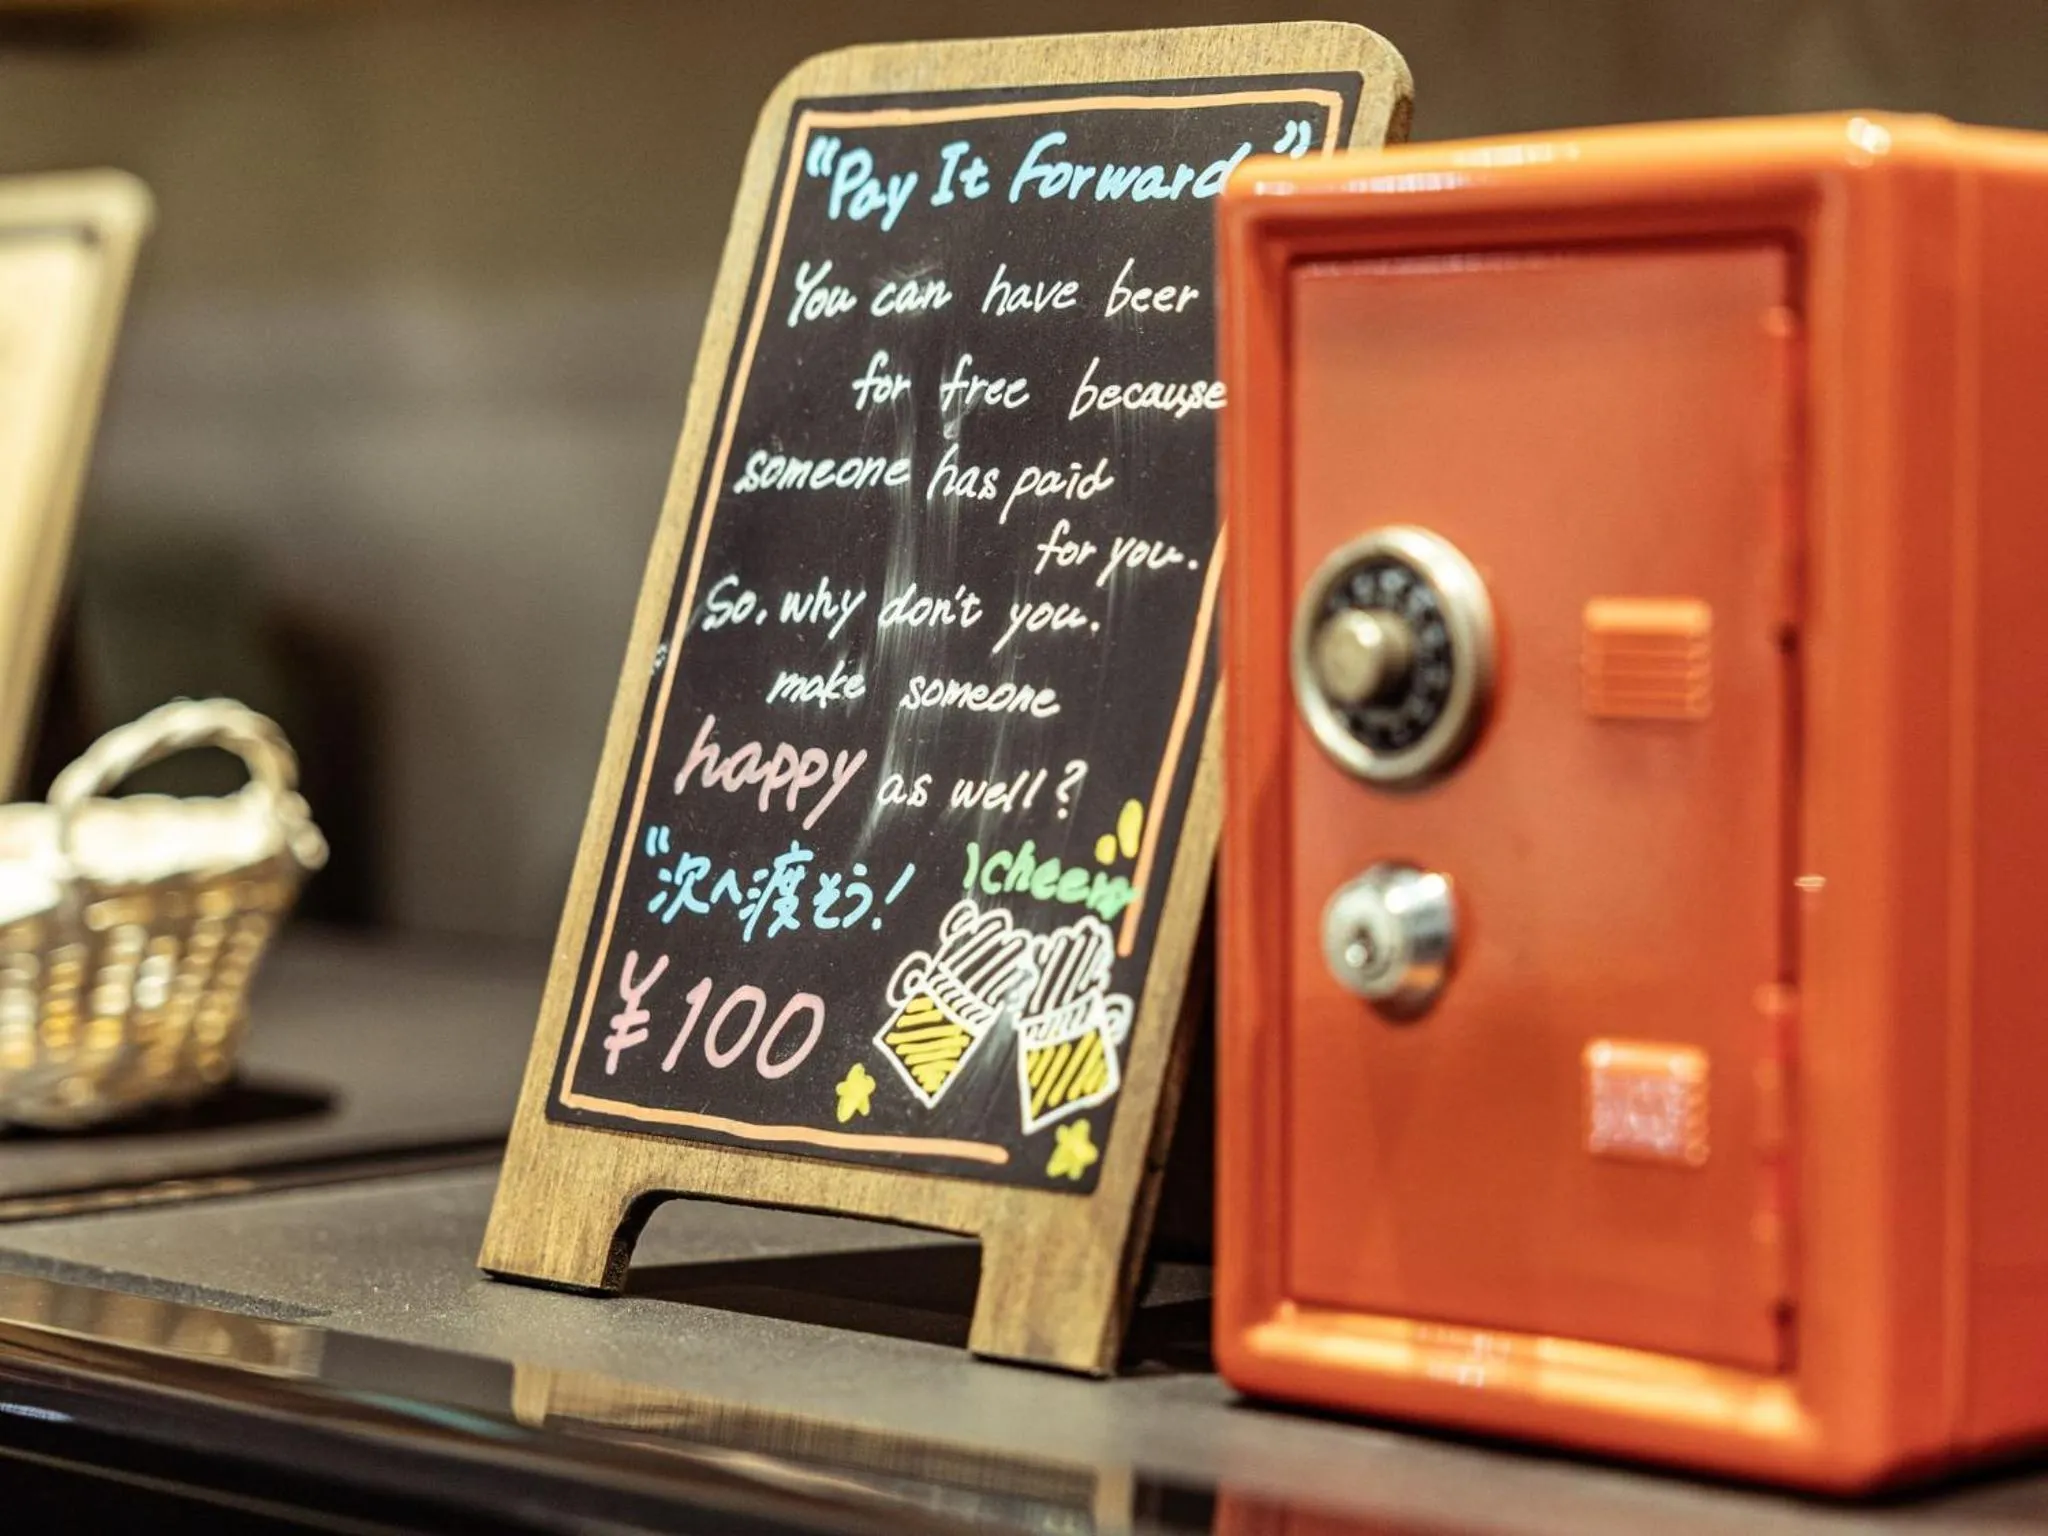 "Pay It Forward"
You can have beer
for free because
someone has paid
for you.
So, why don't you.
make someone
happy as well?
"次へ渡そう!
cheers
¥100